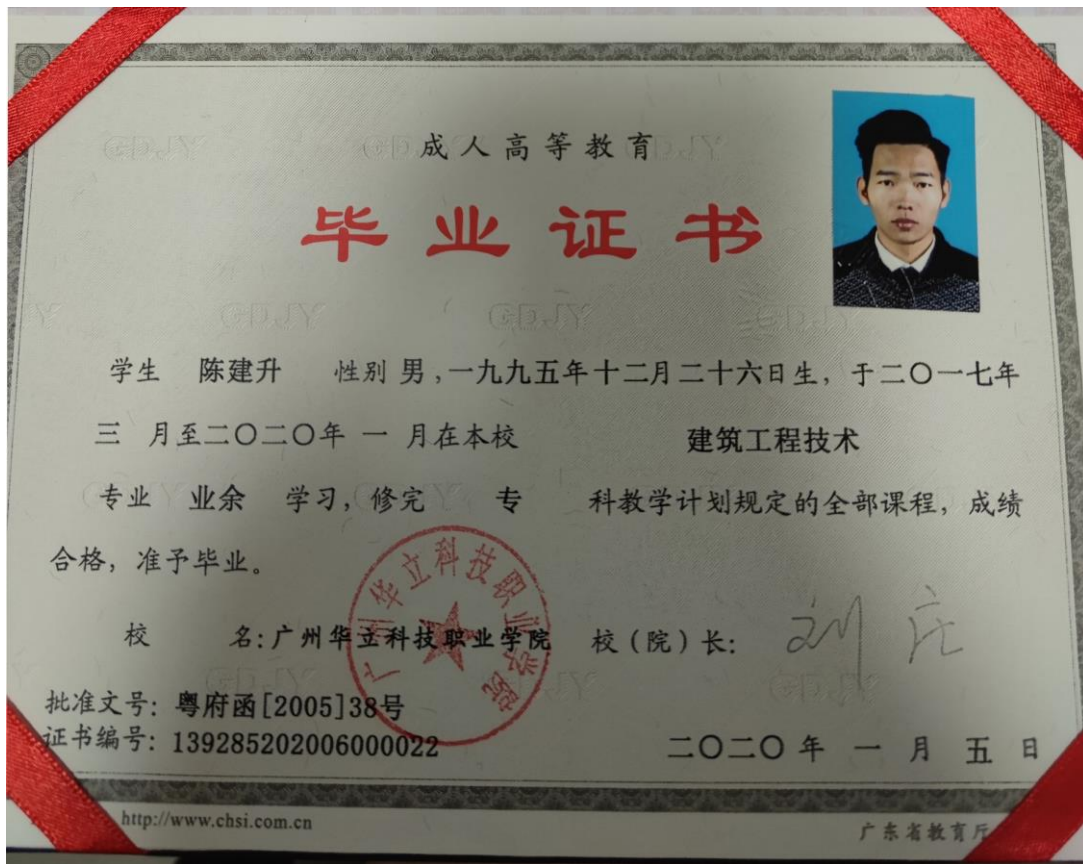 GDJY GDJY GDJY
成人高等教育
毕业证书
GDJY GDJY GDJY
学生 陈建升 性别 男,一九九五年十二月二十六日生，于二〇一七年
三 月至二〇二〇年 一 月在本校 建筑工程技术
专业 业余 学习,修完 专 科教学计划规定的全部课程，成绩
合格，准予毕业。
广州华立科技职业学院
校 名:广州华立科技职业学院 校(院)长: 刘庆
批准文号: 粤府函[2005]38号
证书编号: 139285202006000022
二〇二〇年 一 月 五 日
http://www.chsi.com.cn
广东省教育厅